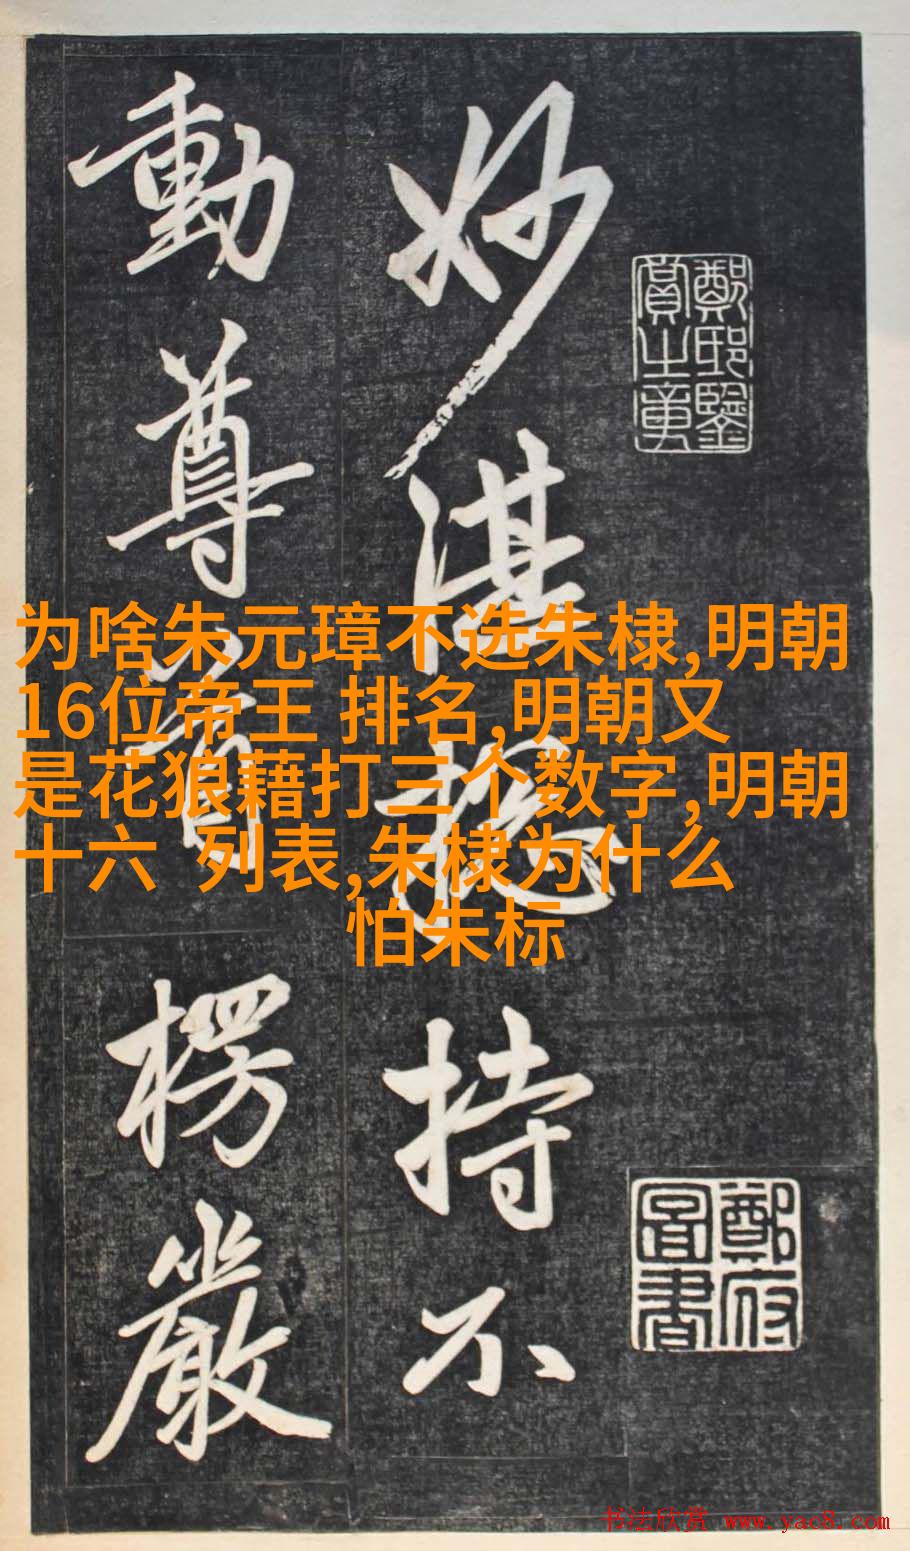 妙湛總持不
動尊首楞嚴
鄭邸鑒
賞之章
鄭府
圖書
为啥朱元璋不选朱棣,明朝
16位帝王 排名,明朝又
是花狼藉打三个数字,明朝
十六 列表,朱棣为什么
怕朱标
书法欣赏 www.yac8.com